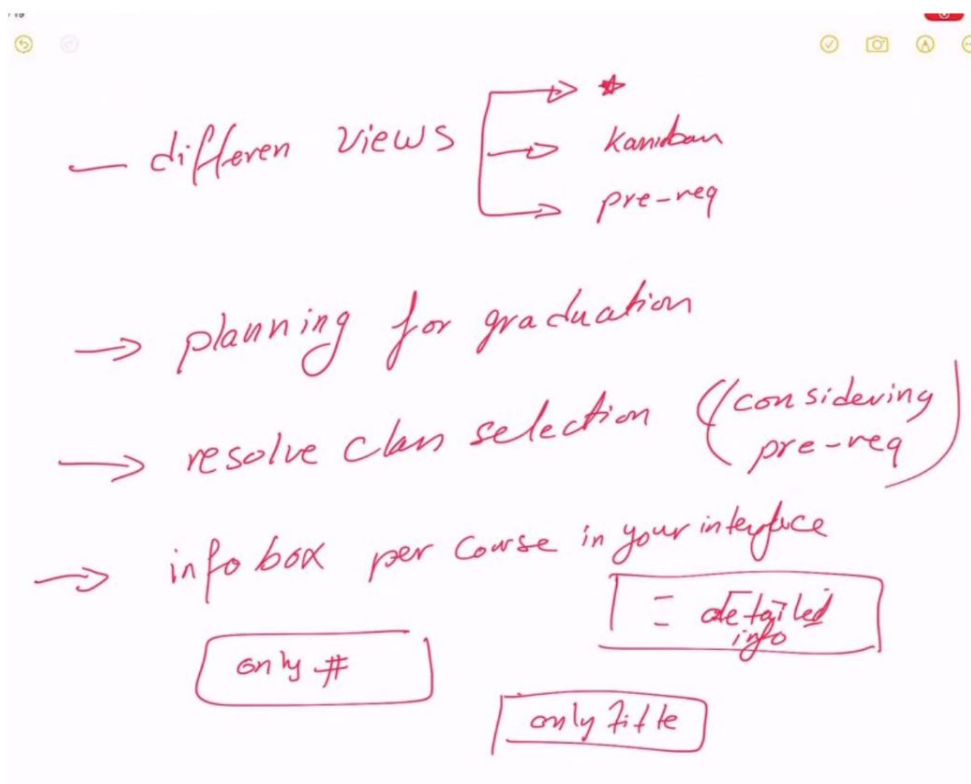 — differen views
→ *
→ Kanban
→ pre-req
→ planning for graduation
→ resolve class selection (considering
pre-req)
→ info box per course in your interface
= detailed
info
only #
only Title